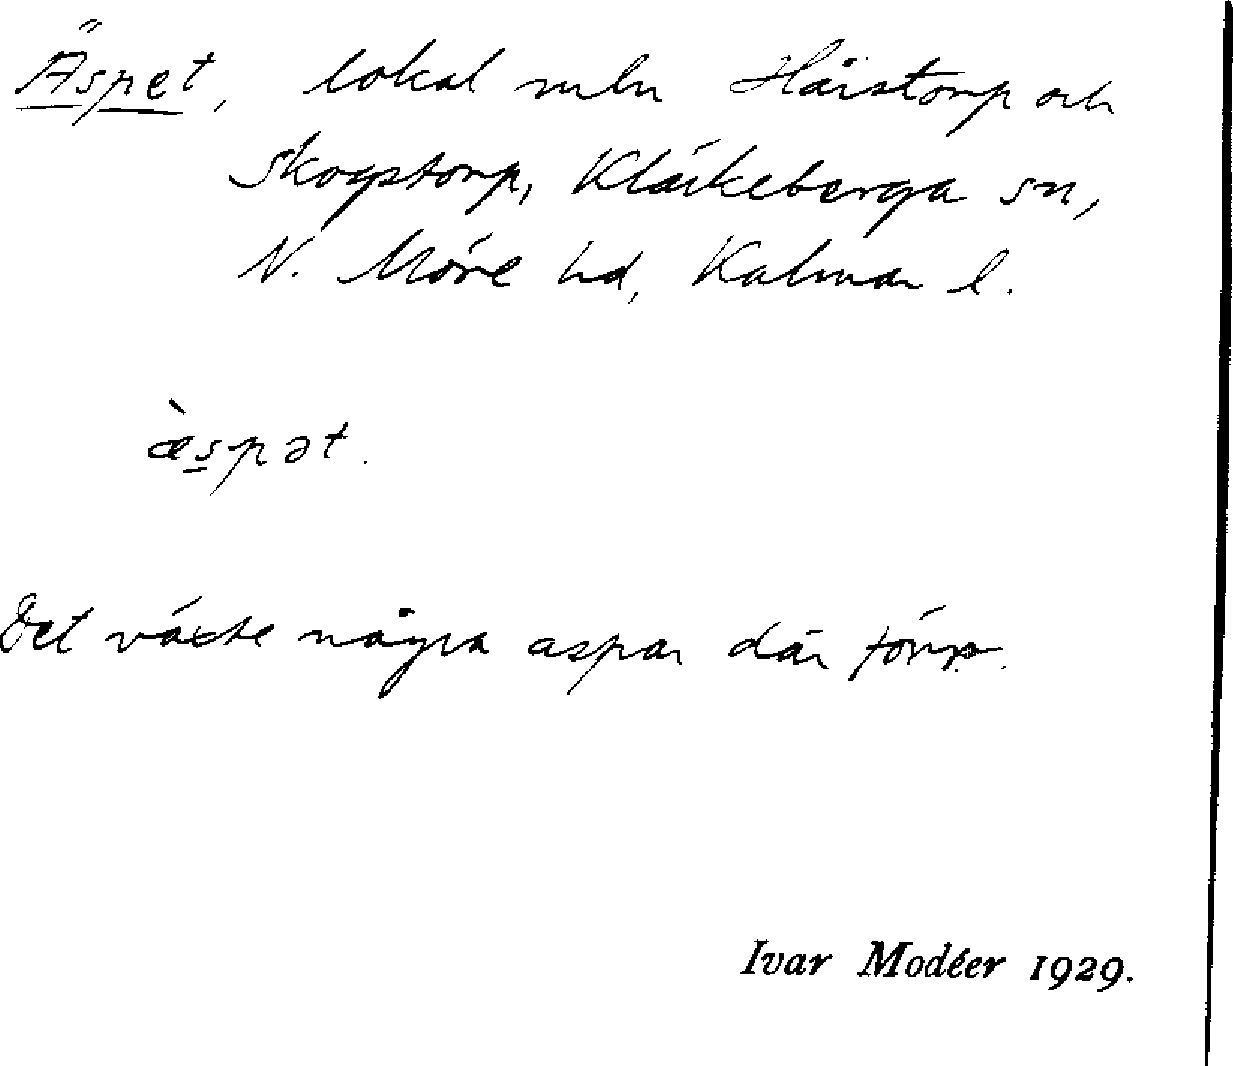 Äspet, lokal mln Häistorp och
Skogstorp, Kläckeberga sn,
N. Möre hd, Kalmar l.
æ̀spət.
Det växte några aspar där förr.
Ivar Modéer 1929.